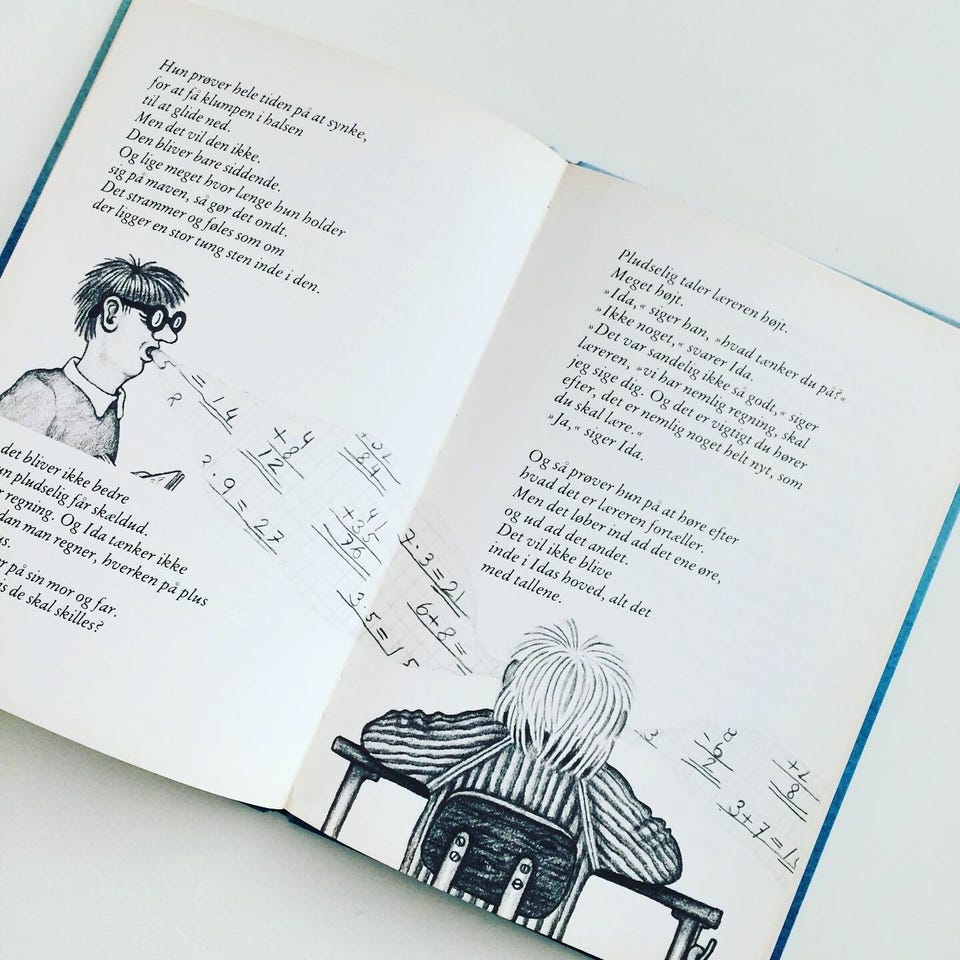 Hun prøver hele tiden på at synke,
for at få klumpen i halsen
til at glide ned.
Men det vil den ikke.
Den bliver bare siddende.
Og lige meget hvor længe hun holder
sig på maven, så gør det ondt.
Det strammer og føles som om
der ligger en stor tung sten inde i den.
= 14
2.9=27
3.5=15
det bliver ikke bedre
pludselig får skældud.
regning. Og Ida tænker ikke
man regner, hverken på plus
på sin mor og far.
de skal skilles?
Pludselig taler læreren højt.
Meget højt.
»Ida,« siger han, »hvad tænker du på?«
»Ikke noget,« svarer Ida.
»Det var sandelig ikke så godt,« siger
læreren, »vi har nemlig regning, skal
jeg sige dig. Og det er vigtigt du hører
efter, det er nemlig noget helt nyt, som
du skal lære.«
»Ja,« siger Ida.
Og så prøver hun på at høre efter
hvad det er læreren fortæller.
Men det løber ind ad det ene øre,
og ud ad det andet.
Det vil ikke blive
inde i Idas hoved, alt det
med tallene.
7.3=21
6+8=
3+7=15